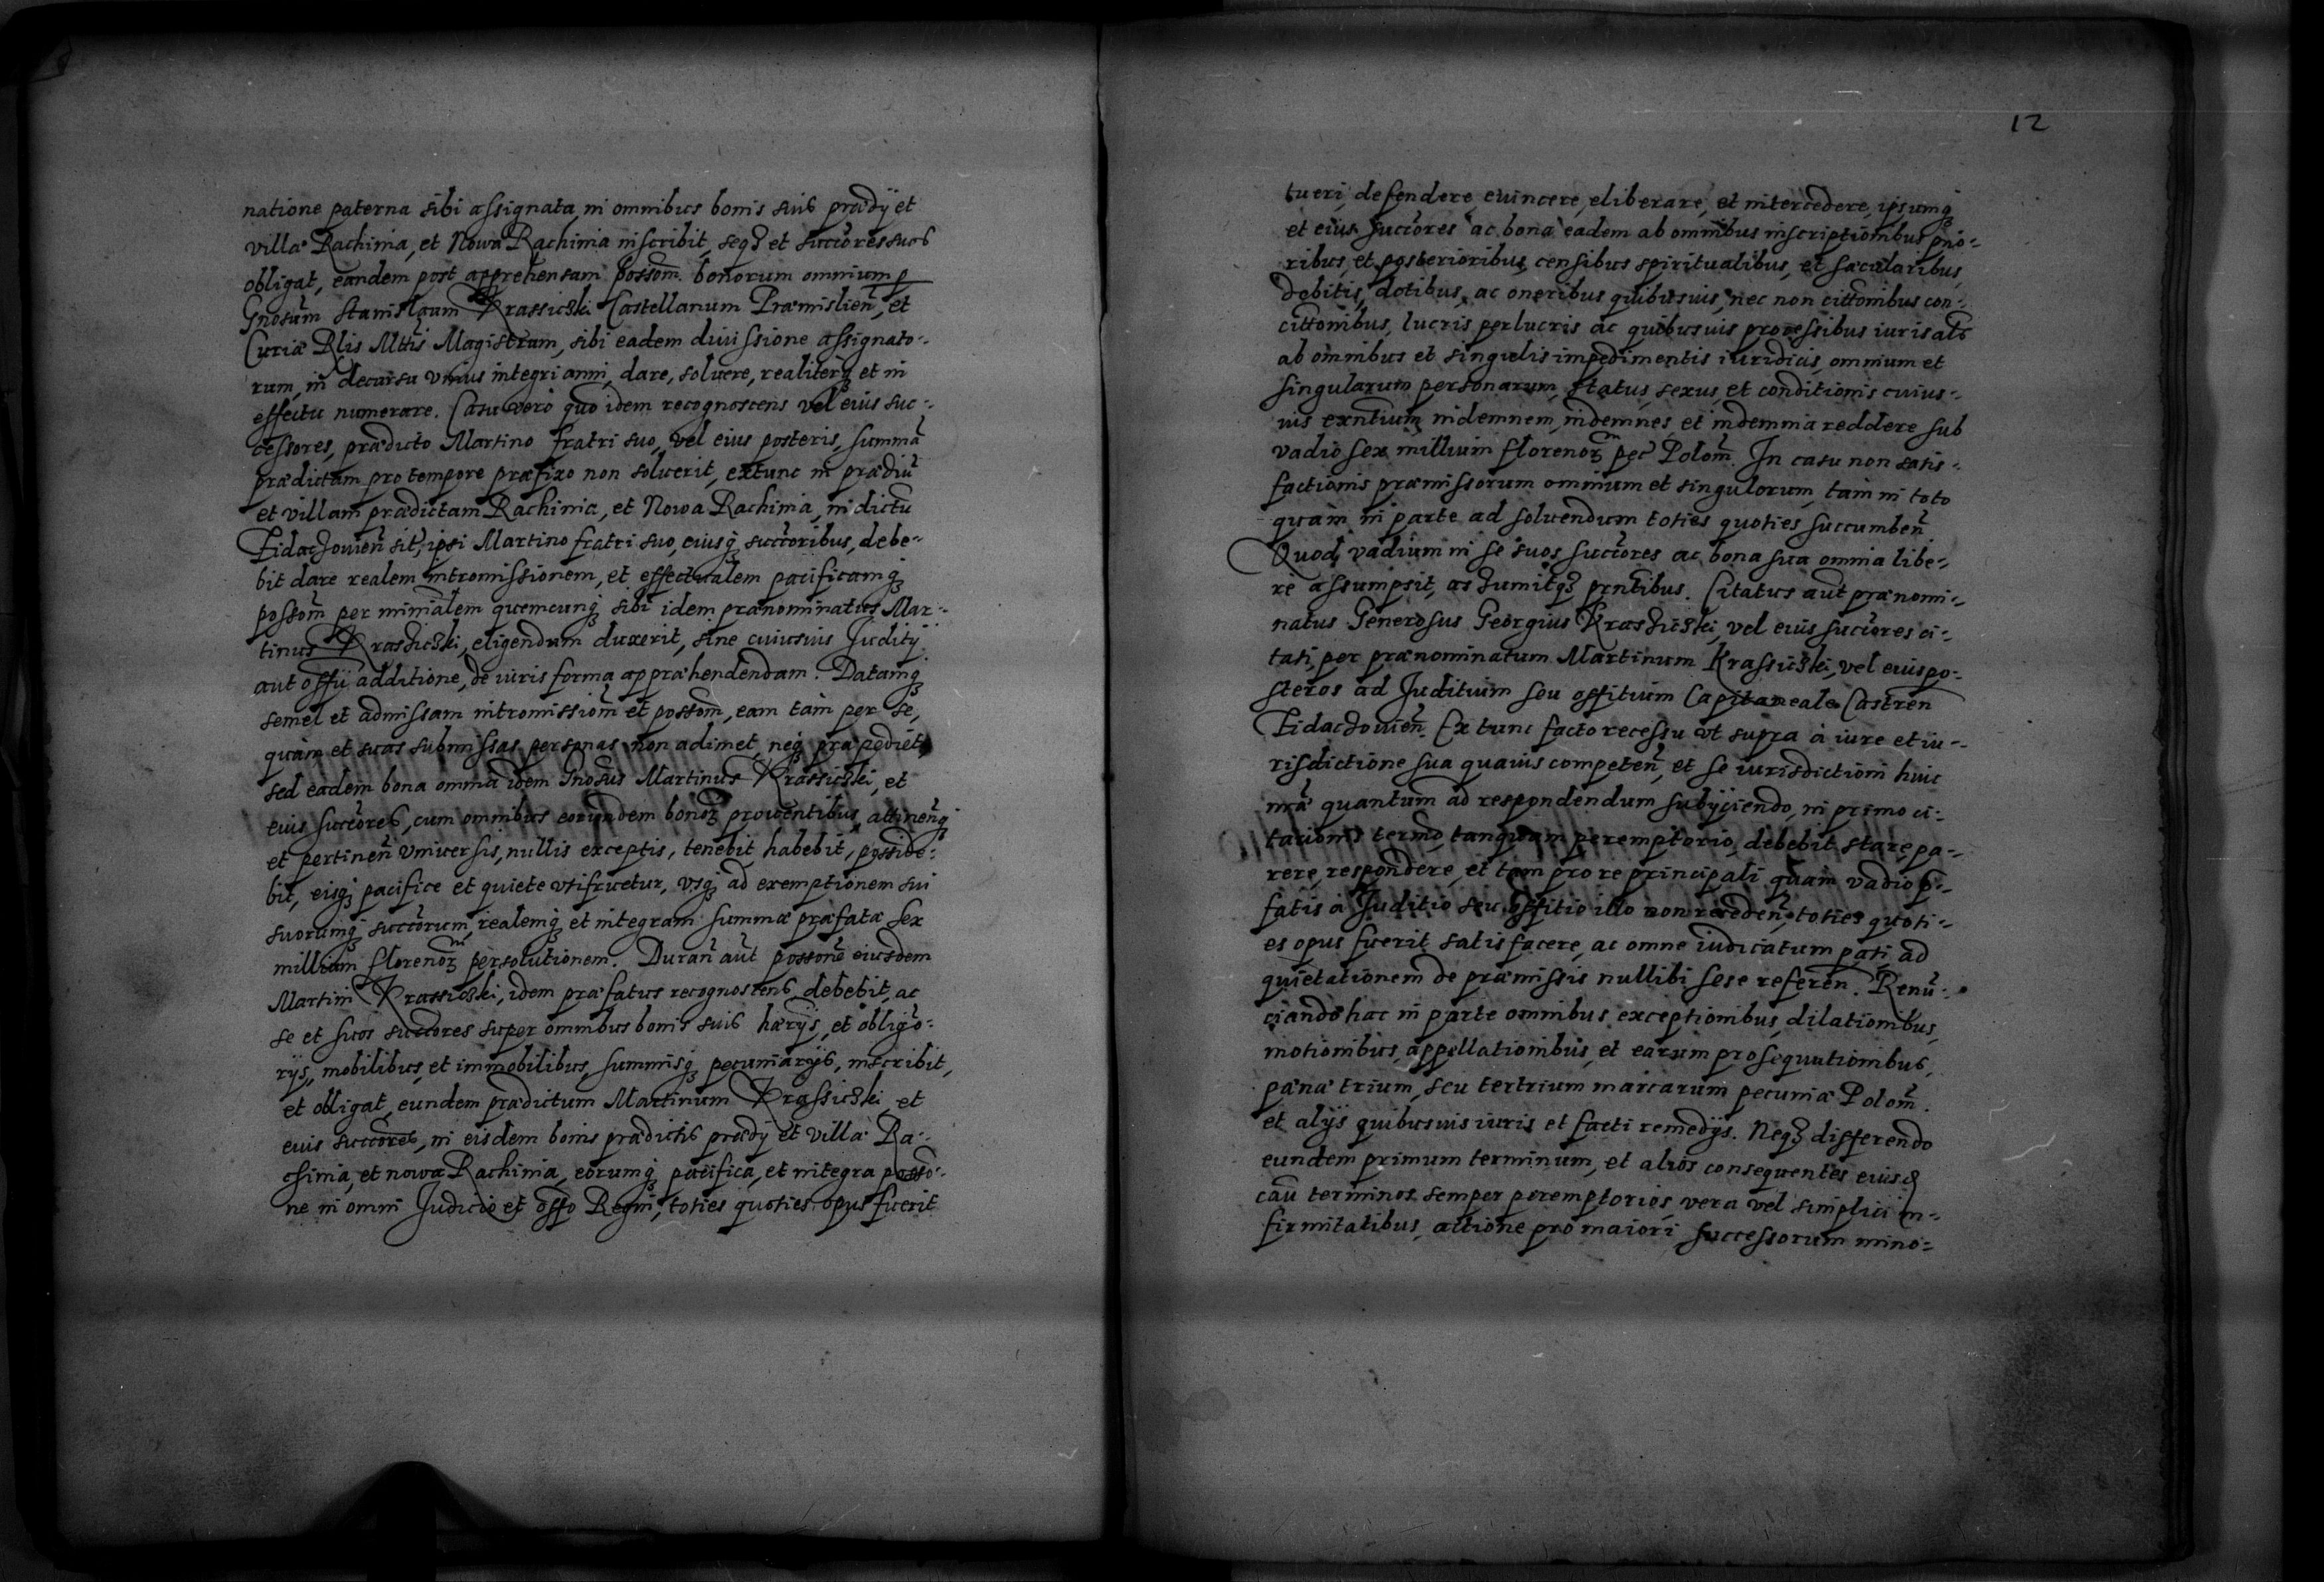 natione paterna sibi assignata, in omnibus bonis suis prædÿ et
villæ Rachinia, et Nowa Rachinia inscribit, seqȝ et succ̃ores suos
obligat, eandem post apprehensam possom̃ bonorum omnium p
Gnosum̃ Stanislaum Krassiczki Castellanum Præmislien̄, et
Curiæ Rlis Mttis Magistrum, sibi eadem diuissione assignato-
rum, in decursu vnius integri anni, dare, soluere, realiterq̃ et in
effectu numerare. Casu vero quo idem recognoscens vel eius suc-
cessores, prædicto Martino fratri suo, vel eius posteris, summã
prædictam pro tempore præfixo non soluerit, extunc in prædiũ
et villam prædictam Rachinia, et Nowa Rachinia, in dictũ
Zidaczowien̄ sit, ipsi Martino fratri suo, eiusq̃ succ̃oribus, debe-
bit dare realem intromissionem, et effectualem pacificamq̃
possom̃ per minialem̃ quemcunq̃ sibi idem prænominatus Mar-
tinus Krasziczki, eligendum duxerit, sine cuiusuis Juditÿ
aut offii additione, de iuris forma appræhendendam. Datamq̃
semel et admissam intromissiom̃ et possom̃, eam tam per se,
quam et suas submissas personas non adimet, neq̃ præpediet,
sed eadem bona omnia idem Gnosus Martinus Krassiczki, et
eius succ̃ores, cum omnibus eorundem bonoȝ prouentibus, attinen̄q̃
et pertinen̄ vniuersis, nullis exceptis, tenebit habebit, posside-
bit, eisq̃ pacifice et quiete vtifruetur, vsq̃ ad exemptionem sui
suorumq̃ succ̃orum, realemq̃ et integram summæ præfatæ sex
millium florenoȝ persolutionem. Duran̄ aut̃ possone eiusdem
Martini Krassiczki, idem præfatus recognoscens, debebit, ac
se et suos succ̃ores super omnibus bonis suis hærÿs, et obligo-
rÿs, mobilibus, et immobilibus, summisq̃ pecuniarÿs, inscribit,
et obligat, eundem prædictum Martinum Krassiczki, et
eius succ̃ores, in eisdem bonis prædictis prædÿ et villæ Ra-
chinia, et nowa Rachinia, eorumq̃ pacifica, et integra posso-
ne in omni Judicio et offo Regni, toties quoties opus fuerit
12
tueri, defendere, euincere, eliberare, et intercedere, ipsumq̃
et eius succ̃ores ac bona eadem ab omnibus inscriptionibus prio-
ribus, et posterioribus, censibus spiritualibus, et sæcularibus,
debitis, dotibus, ac oneribus quibusuis, nec non cittonibus con-
cittonibus, lucris perlucris ac quibusuis processibus iuris als
ab omnibus et singulis impedimentis iuridicis, omnium et
singularum personarum, status, sexus, et conditionis cuius-
uis exntium, indemnem, indemnes et indemnia reddere sub
vadio sex millium florenoȝ pec̃ Polom̃. In casu non satis-
factionis præmissorum omnium et singulorum, tam in toto
quam in parte ad soluendum toties quoties succumben̄
Quod vadium in se suos succ̃ores ac bona sua omnia libe-
re assumpsit, aszumitqȝ prntibus. Citatus aut̃ prænomi-
natus Generosus Georgius Krasziczki, vel eius succ̃ores ci-
tati, per prænominatum Martinum Krassiczki, vel eius po-
steros ad Juditium seu offitium Capitaneale Castren̄
Zidaczowien̄. Ex tunc facto recessu vt supra à iure et iu-
risdictione sua quauis competen̄, et se iurisdictioni huic
nrã quantum ad respondendum subÿciendo, in primo ci-
tationis termo, tanquam peremptorio, debebit stare, pa-
rere, respondere, et tam pro re principali quam vadio p-
fatis à Juditio seu offitio illo non receden̄, toties quoti-
es opus fuerit satisfacere, ac omne iudicatum pati, ad
quietationem de præmissis nullibi sese referen̄. Renũ-
ciando hac in parte omnibus exceptionibus, dilationibus,
motionibus, appellationibus, et earum prosequutionibus,
pæna trium, seu tertrium marcarum pecuniæ Polom̃.
et alÿs quibusuis iuris et facti remedÿs. Neqȝ differendo
eundem primum terminum, et alios consequentes eiusd
cau terminos semper peremptorios, vera vel simplici in-
firmitatibus, actione pro maiori, successorum mino-